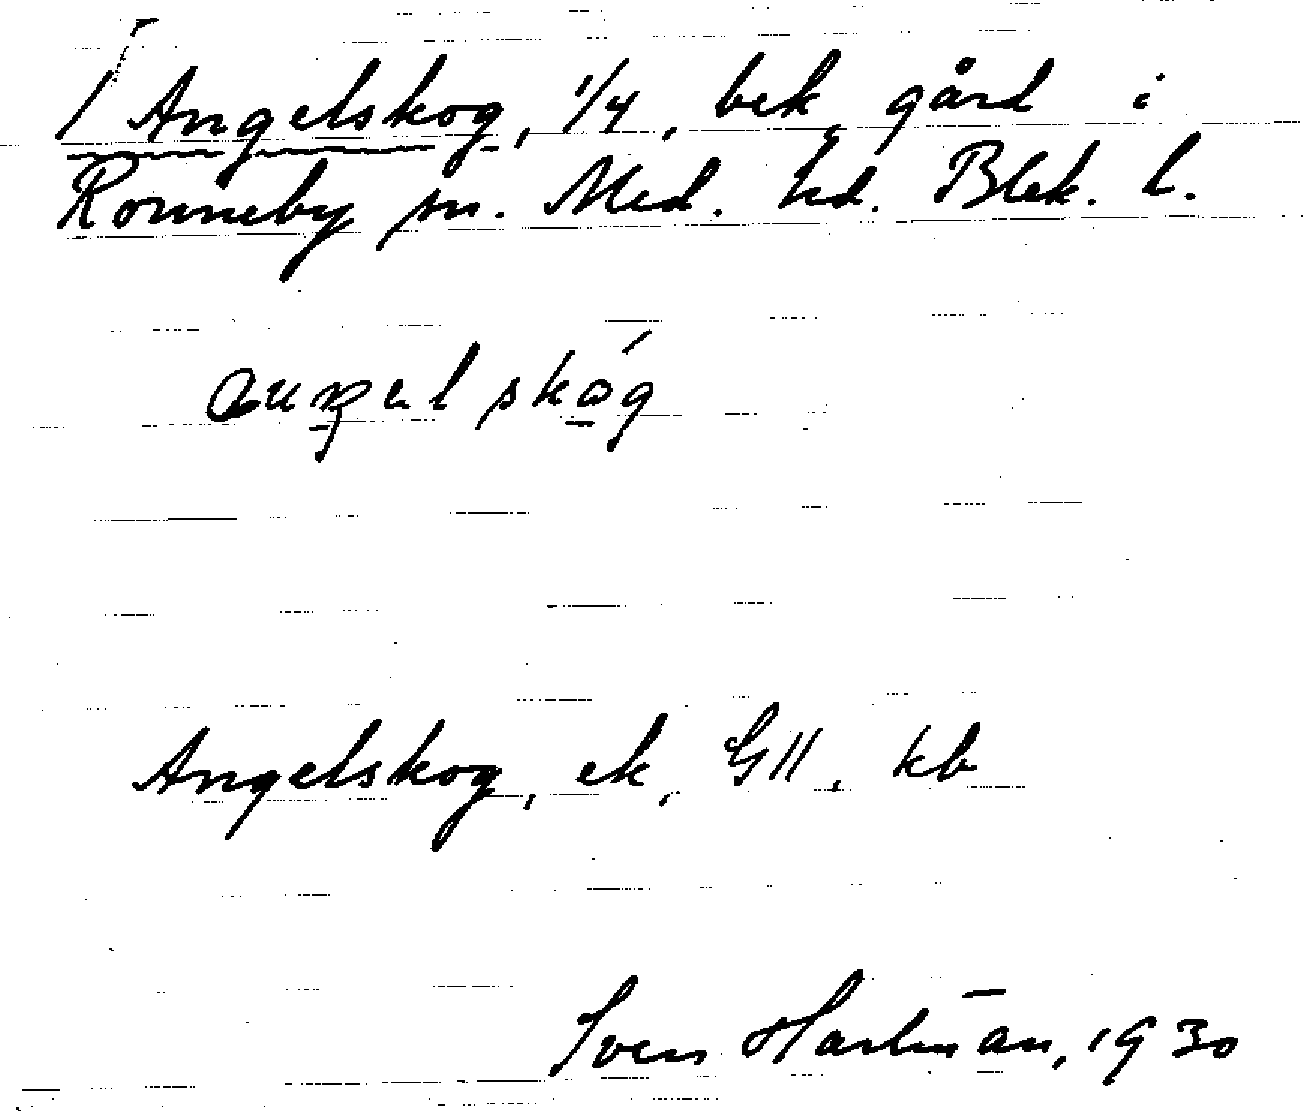 Angelskog, 1/4, bek. gård i
Ronneby sn. Med. hd. Blek. l.
Angelskog, ek, GII, kb
Sven Hartman, 1930